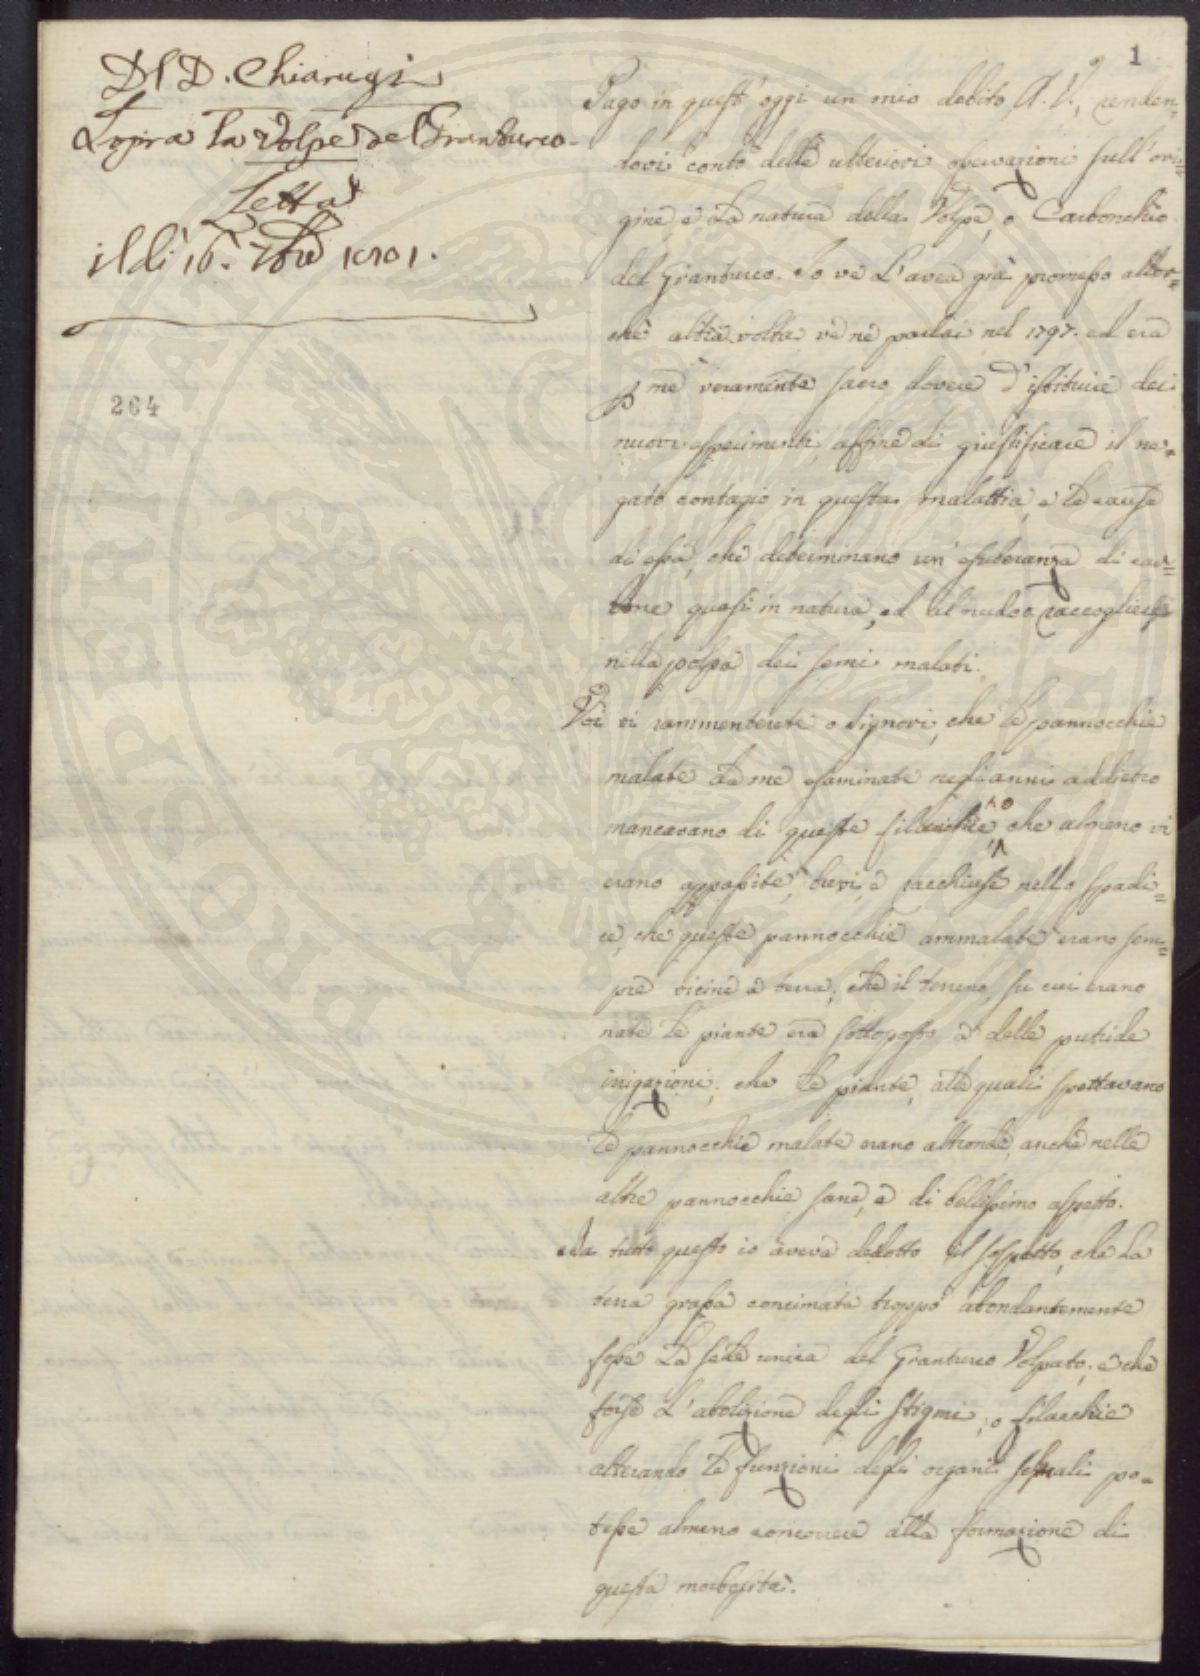 1
Del D. Chiarugi
Sopra la Volpe del Granturco
Letta
il dì 16. 7bre 1801.
264
Pago in quest' oggi un mio debito, A. V., renden=
dovi conto delle ulteriori osservazioni sull' ori=
gine e la natura della Volpe, o Carbonchio
del Granturco. Io ve l'avea già promesso allor=
chè altra volta ve ne parlai nel 1797. ed era
p me veramente sacro dovere d'istituire dei
nuovi esperimenti, affine di giustificare il ne=
gato contagio in questa malattia, e le cause
di essa, che determinano un' esuberanza di car=
bone quasi in natura, ed al nudo a raccogliersi
nella polpa dei semi malati.
Voi vi rammenterete o Signori, che le pannocchie
malate da me esaminate negli anni addietro
mancavano di queste filacciche, o che almeno vi
erano appassite, brevi, e racchiuse nello spadi=
ce, che queste pannocchie ammalate erano sem=
pre vicine a terra; che il terreno, su cui erano
nate le piante era sottoposto a delle putride
irrigazioni; che le piante, alle quali spettavano
le pannocchie malate erano altronde, anche nelle
altre pannocchie sane, e di bellissimo aspetto.
Da tutto questo io aveva dedotto il sospetto, che la
terra grassa concimata troppo abondantemente
fosse la sede unica del Granturco Volpato; e che
forse l'abolizione degli stigmi, o filacciche
alterando le funzioni degli organi sessuali po=
tesse almeno concorrere alla formazione di
questa morbosità.